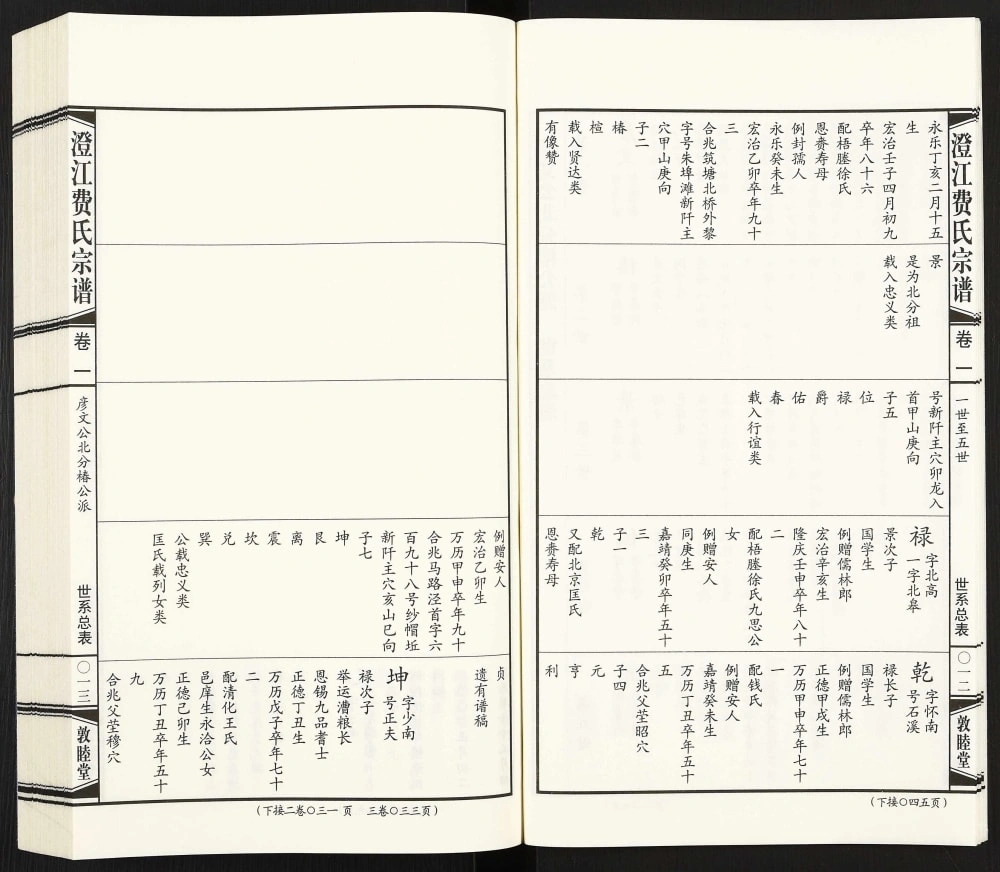 澄江费氏宗谱
卷一
一世至五世
世系总表
〇一二
敦睦堂
永乐丁亥二月十五
生
宏治壬子四月初九
卒年八十六
配梧塍徐氏
恩赉寿母
例封孺人
永乐癸未生
宏治乙卯卒年九十
三
合兆筑塘北桥外黎
字号朱埠滩新阡主
穴甲山庚向
子二
椿
楦
载入贤达类
有像赞
景
是为北分祖
载入忠义类
号新阡主穴卯龙入
首甲山庚向
子五
位
禄
爵
佑
春
载入行谊类
禄 字北高
一字北皋
景次子
国学生
例赠儒林郎
宏治辛亥生
隆庆壬申卒年八十
二
配梧塍徐氏九思公
女
例赠安人
同庚生
嘉靖癸卯卒年五十
三
子一
乾
又配北京匡氏
恩赉寿母
乾 字怀南
号石溪
禄长子
国学生
例赠儒林郎
正德甲戌生
万历甲申卒年七十
一
配钱氏
例赠安人
嘉靖癸未生
万历丁丑卒年五十
五
合兆父茔昭穴
子四
元
亨
利
(下接〇四五页)
例赠安人
宏治乙卯生
万历甲申卒年九十
合兆马路泾首字六
百九十八号纱帽坵
新阡主穴亥山巳向
子七
坤
艮
离
震
坎
兑
巽
公载忠义类
匡氏载列女类
贞
遗有谱稿
坤 字少南
号正夫
禄次子
举运漕粮长
恩锡九品耆士
正德丁丑生
万历戊子卒年七十
二
配清化王氏
邑庠生永治公女
正德己卯生
万历丁丑卒年五十
九
合兆父茔穆穴
(下接二卷〇三一页 三卷〇三三页)
澄江费氏宗谱
卷一
彦文公北分椿公派
世系总表
〇一三
敦睦堂